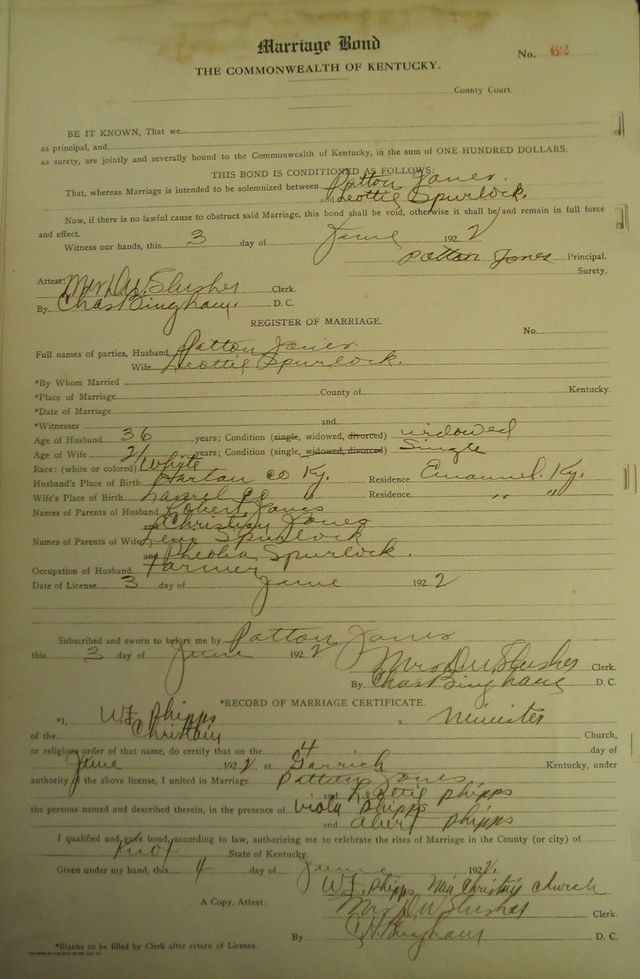 Marriage Bond
No. 62
THE COMMONWEALTH OF KENTUCKY.
County Court.
BE IT KNOWN, That we
as principal, and
as surety, are jointly and severally bound to the Commonwealth of Kentucky, in the sum of ONE HUNDRED DOLLARS.
THIS BOND IS CONDITIONED AS FOLLOWS:
That, whereas Marriage is intended to be solemnized between Patton Jones.
and Leottie Spurlock.
Now, if there is no lawful cause to obstruct said Marriage, this bond shall be void, otherwise it shall be and remain in full force
and effect.
Witness our hands, this 3 day of June 1922
Patton Jones Principal.
Surety.
Attest: Mrs D.W. Slusher Clerk.
By Chas Bingham. D. C.
REGISTER OF MARRIAGE.
No.
Full names of parties, Husband Patton Jones.
Wife Leottie Spurlock.
*By Whom Married
*Place of Marriage County of Kentucky.
*Date of Marriage
*Witnesses and
Age of Husband 36 years; Condition (single, widowed, divorced) widowed
Age of Wife 21 years; Condition (single, widowed, divorced) Single
Race: (white or colored) White
Husband's Place of Birth Harlan Co Ky. Residence Emanuel. Ky.
Wife's Place of Birth Laurel Co " Residence " "
Names of Parents of Husband Robert Jones
and Christian Jones
Names of Parents of Wife Spurlock
and Pheoba Spurlock.
Occupation of Husband Farmer
Date of License 3 day of June 1922
Subscribed and sworn to before me by Patton Jones
this 3 day of June 1922
Mrs D W Slusher Clerk.
By Chas Bingham D. C.
*RECORD OF MARRIAGE CERTIFICATE.
*I, W.F. Phipps a minister
of the Christian Church,
or religious order of that name, do certify that on the 4 day of
June 1922 at Kentucky, under
authority of the above license, I united in Marriage Patton Jones
and Leottie Phipps
the persons named and described therein, in the presence of Viola Phipps
and Albert Phipps
I qualified and gave bond, according to law, authorizing me to celebrate the rites of Marriage in the County (or city) of
Knox State of Kentucky.
Given under my hand, this 4 day of June 1922.
W.F. Phipps Min Christian Church
A Copy, Attest: Mrs D W Slusher Clerk.
By C H Bingham D. C.
*Blanks to be filled by Clerk after return of License.